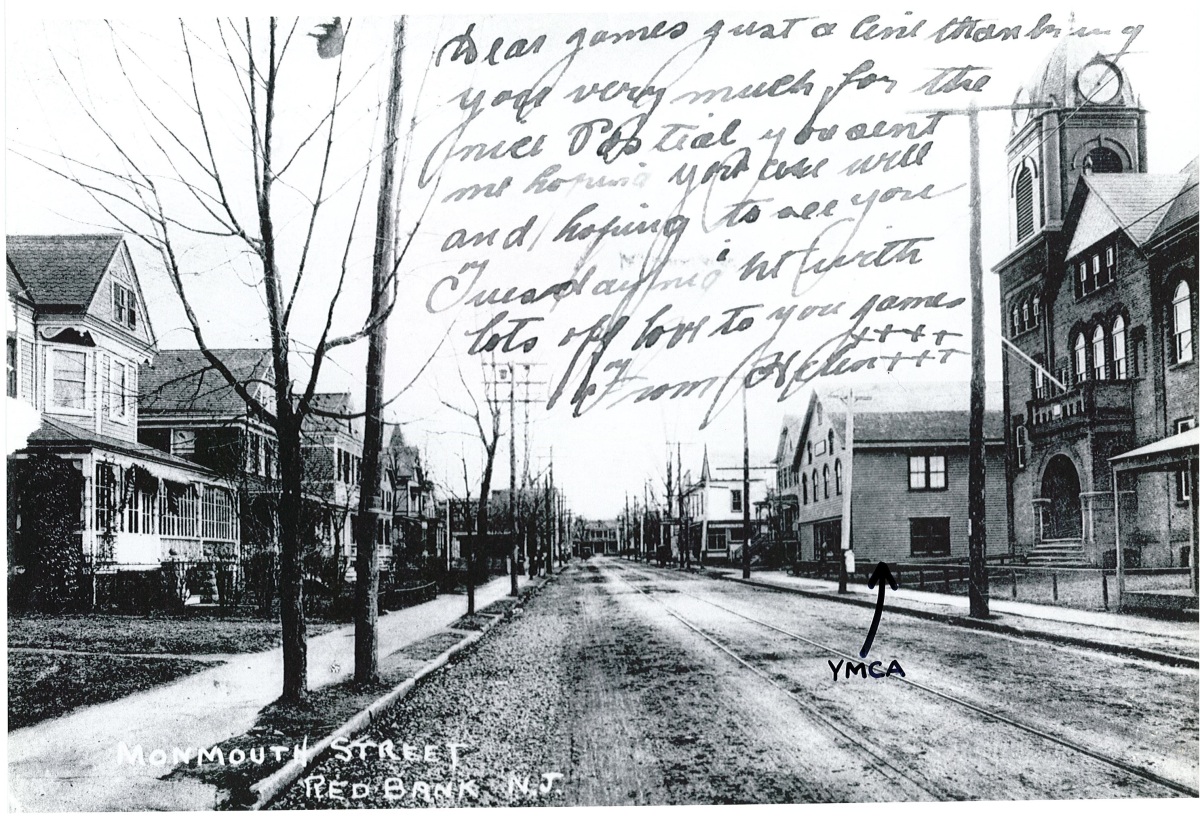 Dear James just a line thanking
you very much for the
nice Postial you sent
me hoping you are well
and hoping to see you
Tuesday night with
lots off love to you James
From Helen ++++
+++
YMCA
MONMOUTH STREET
RED BANK N.J.